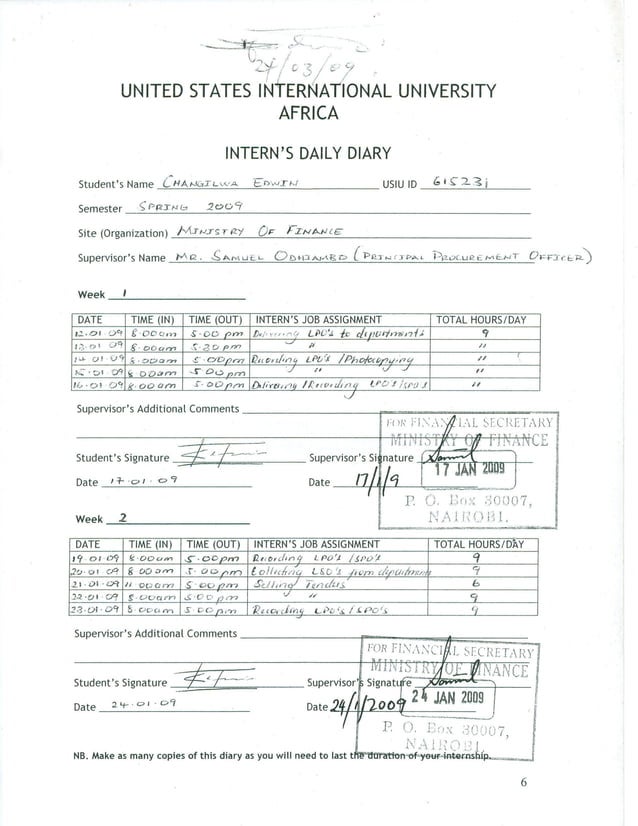 24/03/09
UNITED STATES INTERNATIONAL UNIVERSITY
AFRICA
INTERN'S DAILY DIARY
Student's Name CHANGILWA EDWIN USIU ID 615231
Semester SPRING 2009
Site (Organization) MINISTRY OF FINANCE
Supervisor's Name MR. SAMUEL ODHIAMBO (PRINCIPAL PROCUREMENT OFFICER)
Week 1
DATE TIME (IN) TIME (OUT) INTERN'S JOB ASSIGNMENT TOTAL HOURS/DAY
12-01-09 8-00am 5-00 pm Delivering LPO's to departments 9
13-01-09 8-00am 5-30 pm " "
14-01-09 8-00am 5-00pm Recording LPO's /Photocopying "
15-01-09 8-00am 5-00pm " "
16-01-09 8-00am 5-00pm Delivering /Recording LPO's/SPO's "
Supervisor's Additional Comments
FOR FINANCIAL SECRETARY
MINISTRY OF FINANCE
Student's Signature Supervisor's Signature
17 JAN 2009
Date 17-01-09 Date 17/1/9
P. O. Box 30007,
NAIROBI.
Week 2
DATE TIME (IN) TIME (OUT) INTERN'S JOB ASSIGNMENT TOTAL HOURS/DAY
19-01-09 8-00am 5-00pm Recording LPO's /SPO's 9
20-01-09 8-00am 5-00pm Collecting LSO's from departments 9
21-01-09 11-00am 5-00pm Selling Tenders 6
22-01-09 8-00am 5-00pm " 9
23-01-09 8-00am 5-00pm Recording LPO's /SPO's 9
Supervisor's Additional Comments
FOR FINANCIAL SECRETARY
MINISTRY OF FINANCE
Student's Signature Supervisor's Signature
24 JAN 2009
Date 24-01-09 Date 24/1/2009
P. O. Box 30007,
NAIROBI.
NB. Make as many copies of this diary as you will need to last the duration of your internship.
6